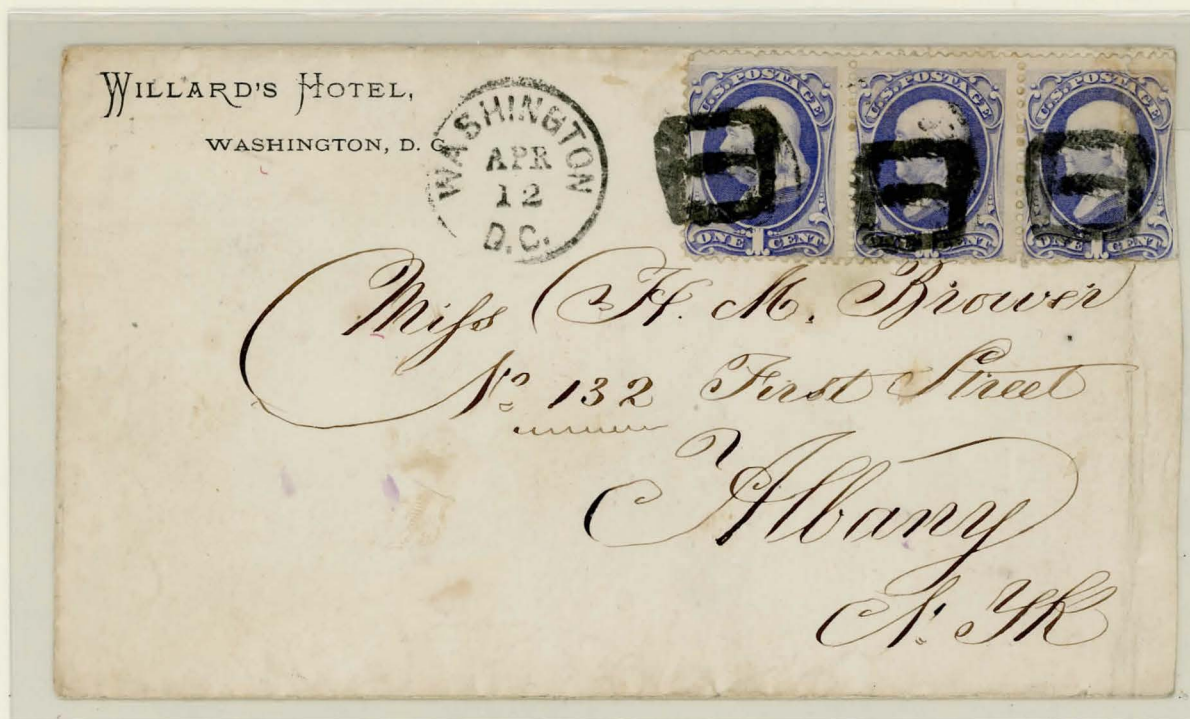 WILLARD'S HOTEL,
WASHINGTON, D. C.
WASHINGTON
APR
12
D.C.
U.S. POSTAGE
ONE 1 CENT
U.S. POSTAGE
ONE 1 CENT
U.S. POSTAGE
ONE 1 CENT
Miſs H. M. Brower
No. 132 First Street
Albany
N. Yk